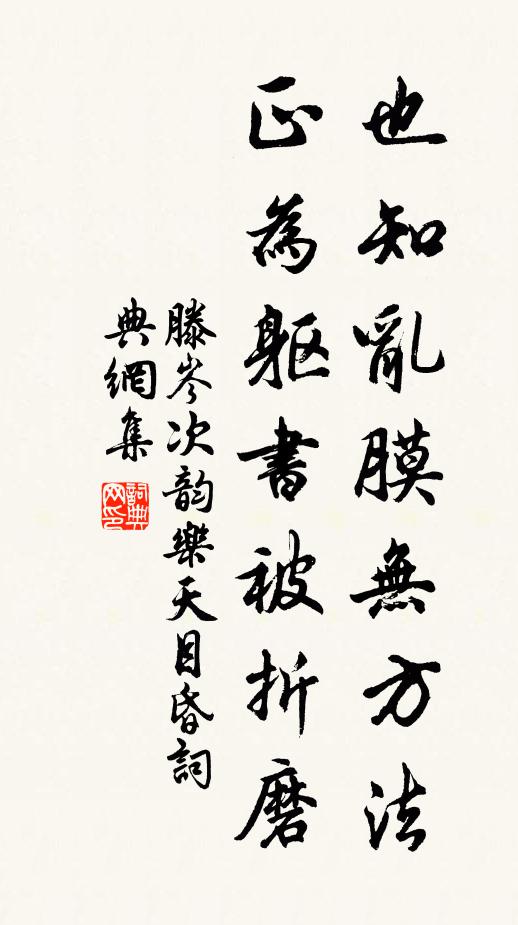 也知亂膜無方法
正為軀書被折磨
滕岑次韵樂天目昏詞
典網集
詞典网印